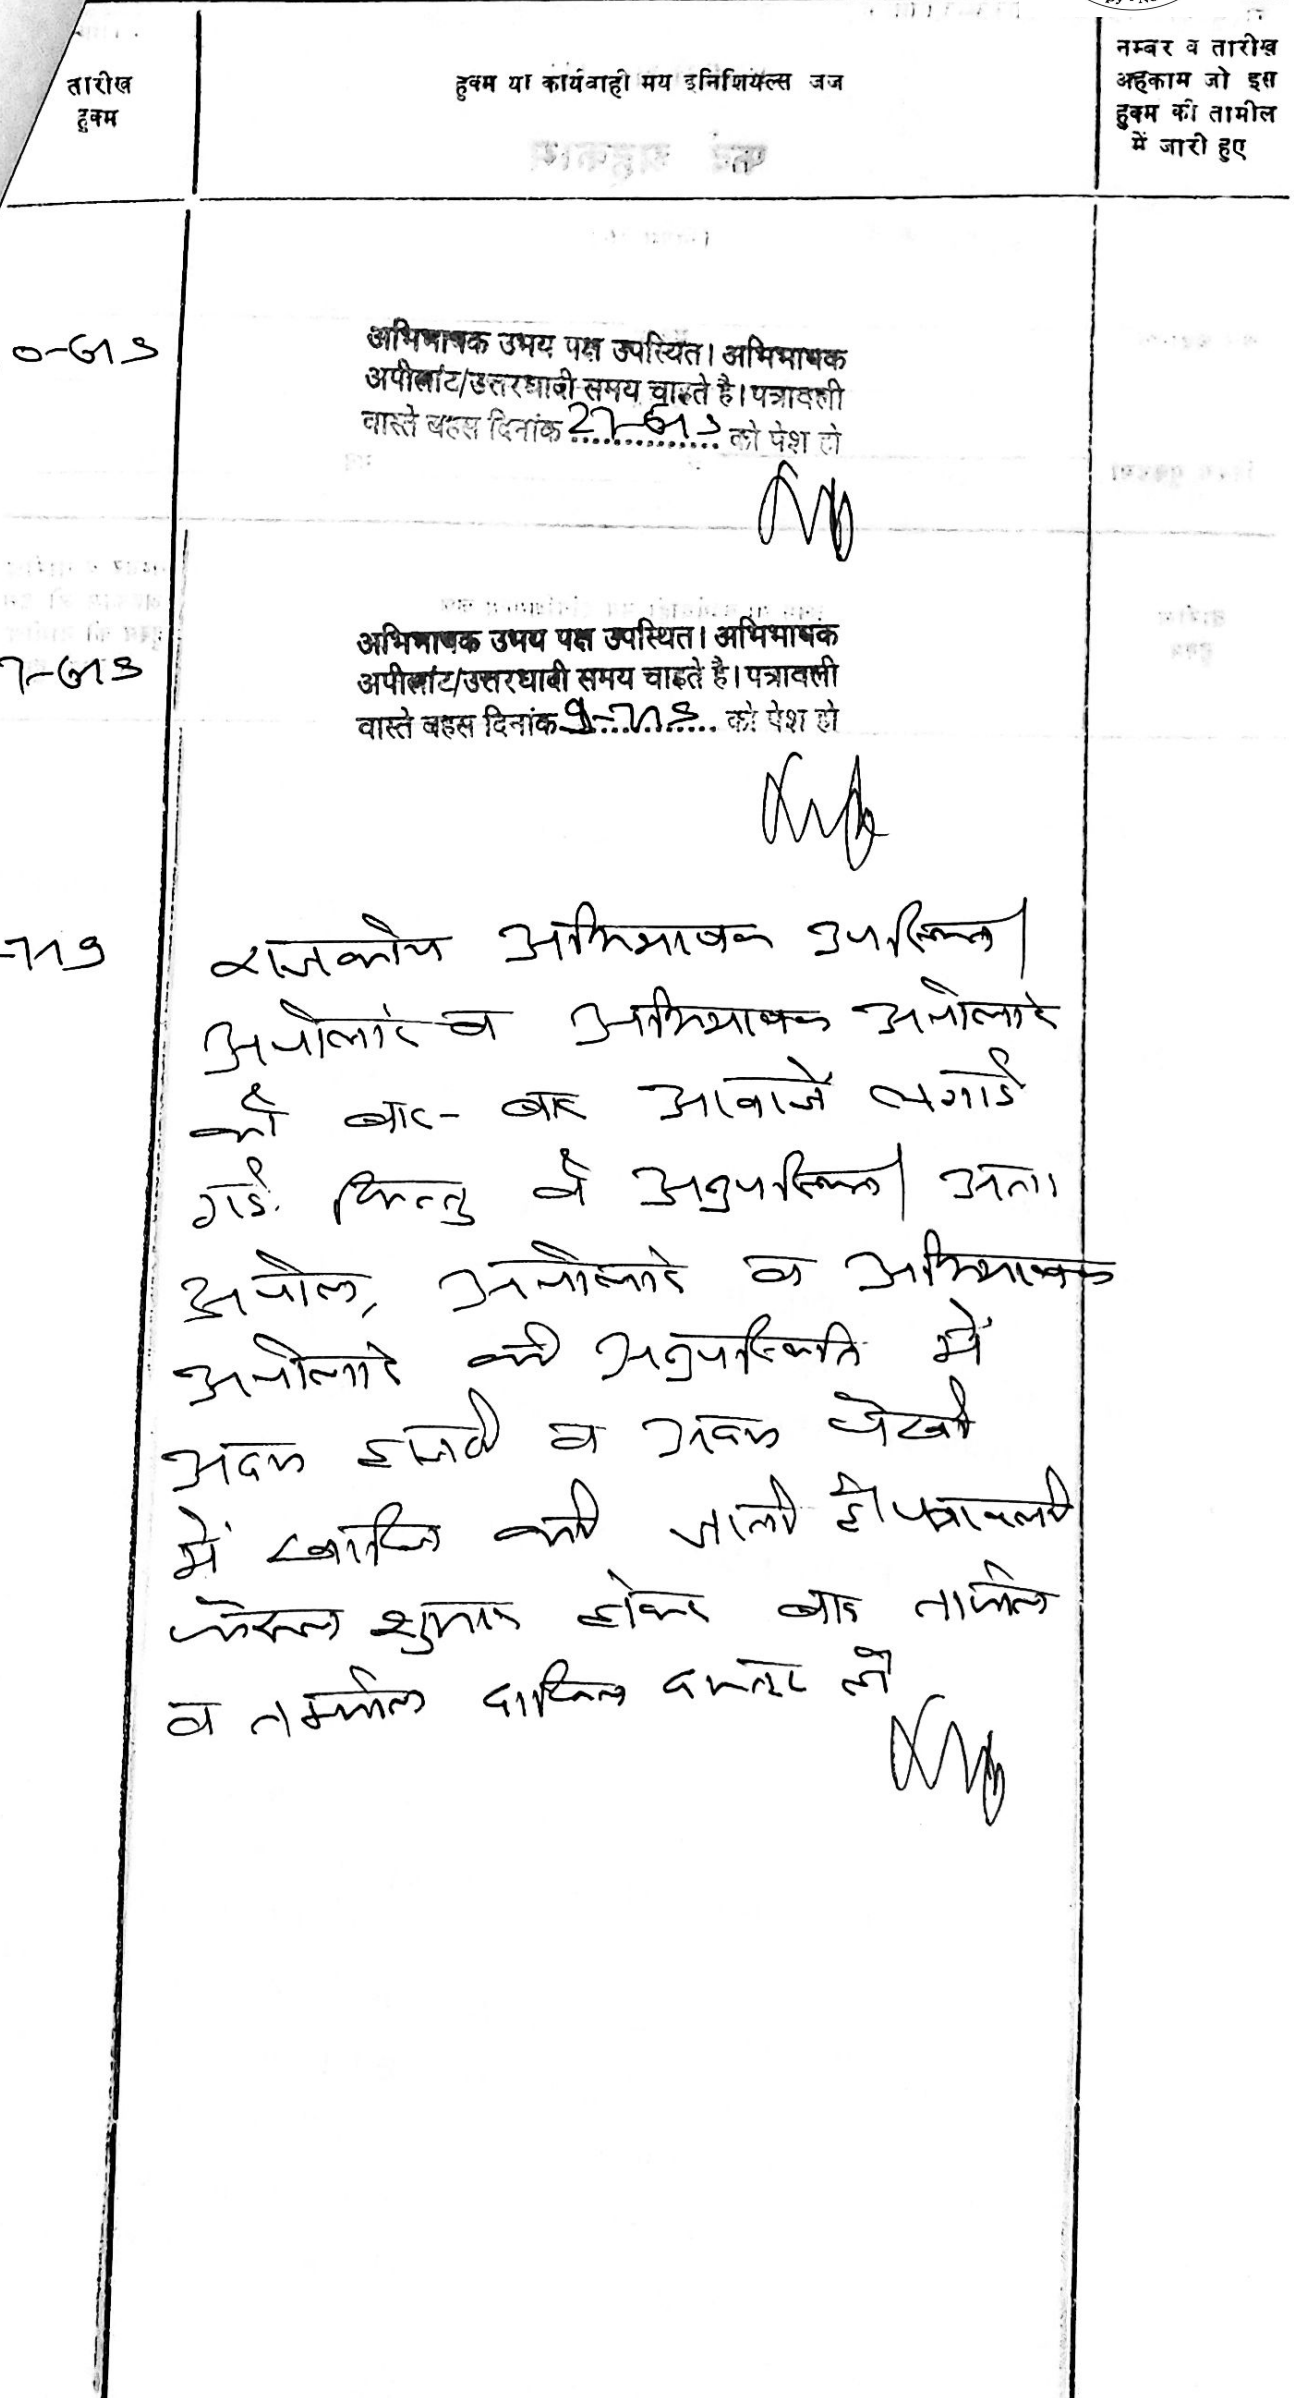 तारीख
हुक्म
हुक्म या कार्यवाही मय इनिशियल्स जज
नम्बर व तारीख
अहकाम जो इस
हुक्म की तामील
में जारी हुए
अभिभाषक उभय पक्ष उपस्थित। अभिभाषक
अपीलांट/उत्तरधादी समय चाहते है। पत्रावली
वास्ते बहस दिनांक 27-6-19 को पेश हो
अभिभाषक उभय पक्ष उपस्थित। अभिभाषक
अपीलांट/उत्तरधादी समय चाहते है। पत्रावली
वास्ते बहस दिनांक 9-7-19 को पेश हो
राजकीय अभिभाषक उपस्थित।
अपीलांट व अभिभाषक अपीलांट
को बार-बार आवाजें लगाई
गई किन्तु वे अनुपस्थित। अतः
अपील, अपीलांट व अभिभाषक
अपीलांट की अनुपस्थिति में
अदम हाजरी व अदम पैरवी
में खारिज की जाती है। पत्रावली
फैसल शुमार होकर बाद तामील
व तकमील दाखिल दफ्तर हो